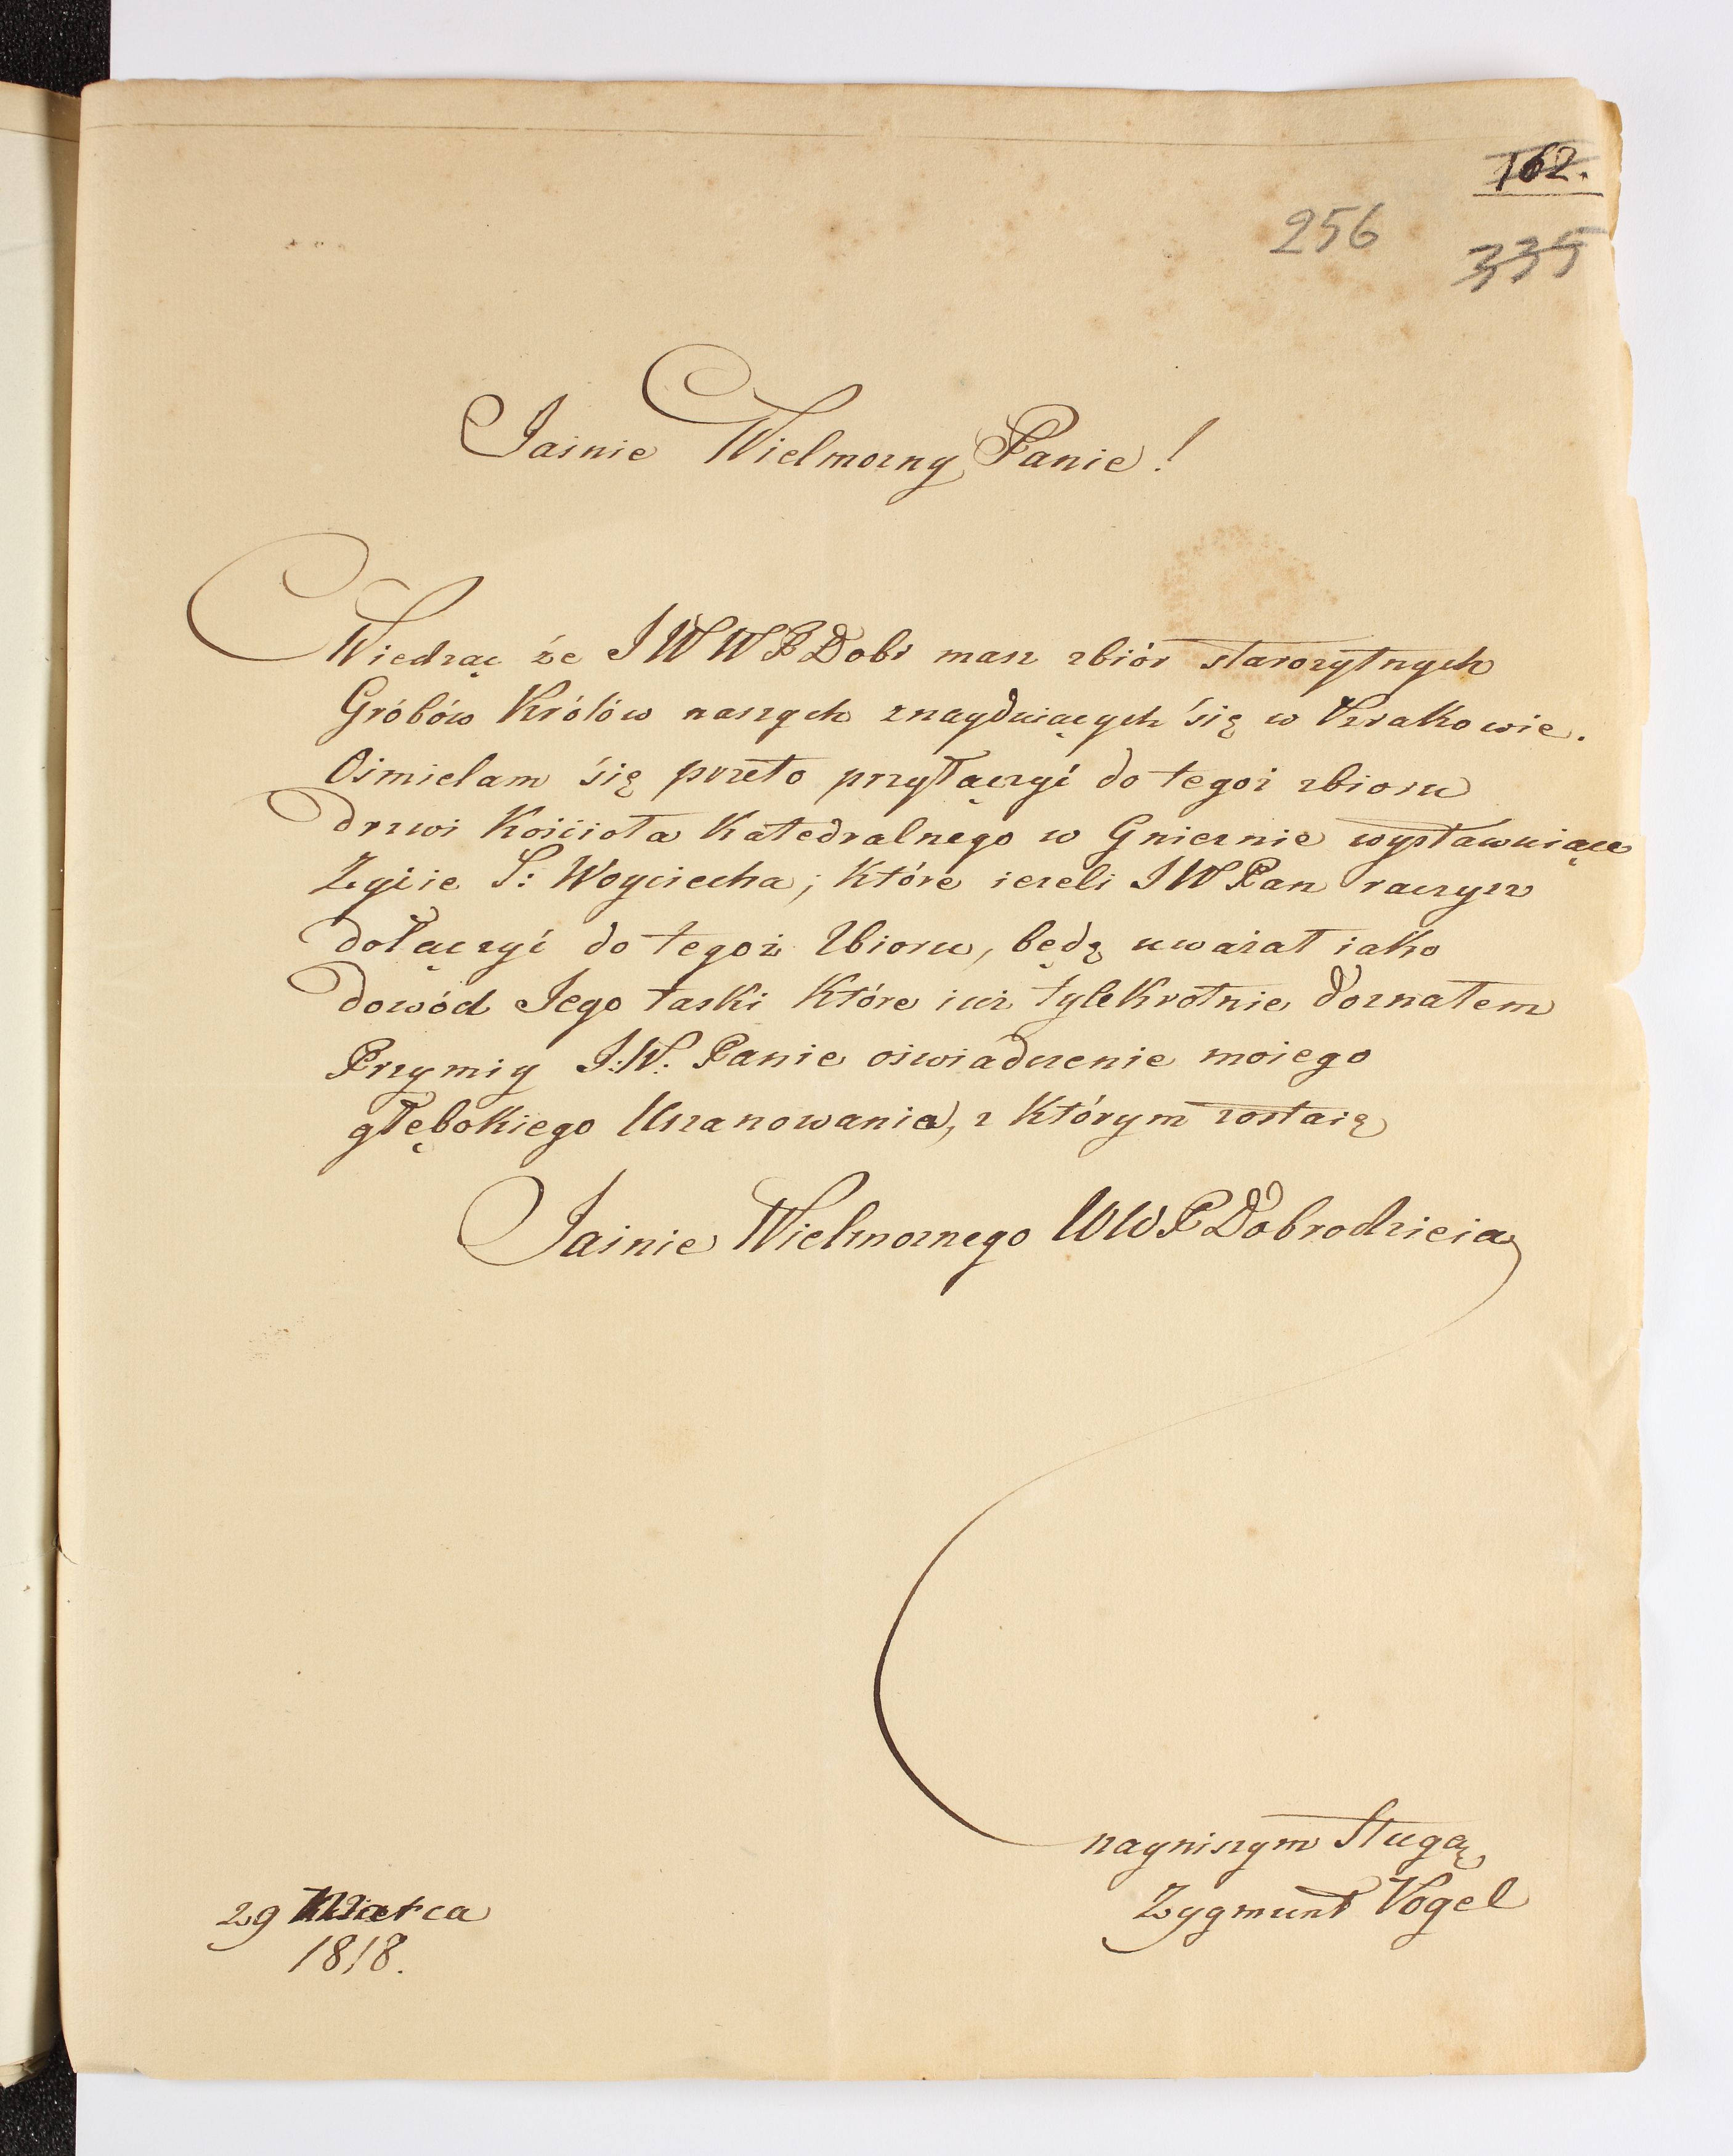 162.
256
335
Jaśnie Wielmozny Panie!
Wiedząc że JWWPDobr masz zbiór starozytnych
Gróbów Królów naszych znayduiących się w Krakowie.
Ośmielam się przeto przyłączyć do tegoż zbioru
drzwi Kościoła Katedralnego w Gnieznie wystawuiące
Zycie S: Woyciecha; które iezeli JWPan raczysz
dołączyć do tegoż Zbioru, będę uważał iako
dowód Jego łaski które iuż tylekrotnie doznałem
Przymiy J:W: Panie oświadczenie moiego
głębokiego Uszanowania, z którym zostaię
Jaśnie Wielmoznego WWPDobrodzieia
nayniszym sługą
Zygmunt Vogel
29 Marca
1818.